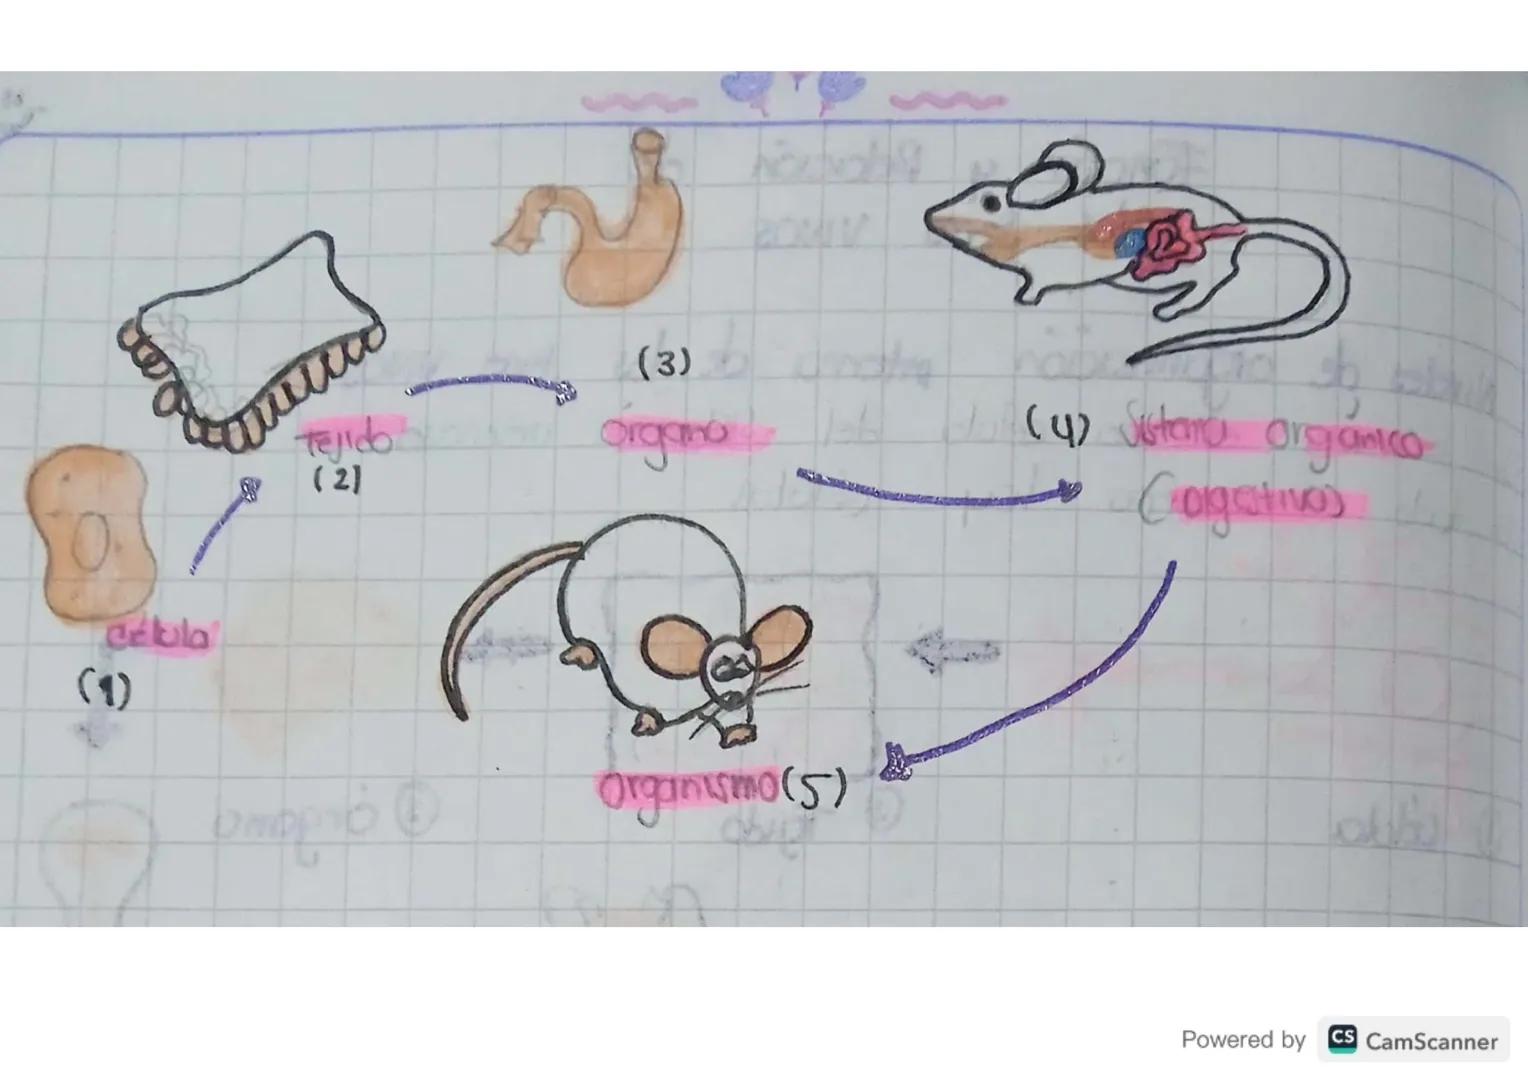 célula
(1)
Tejido
(2)
(3)
órgano
(4) Sistema orgánico
(Digestivo)
organismo (5)
Powered by CS CamScanner